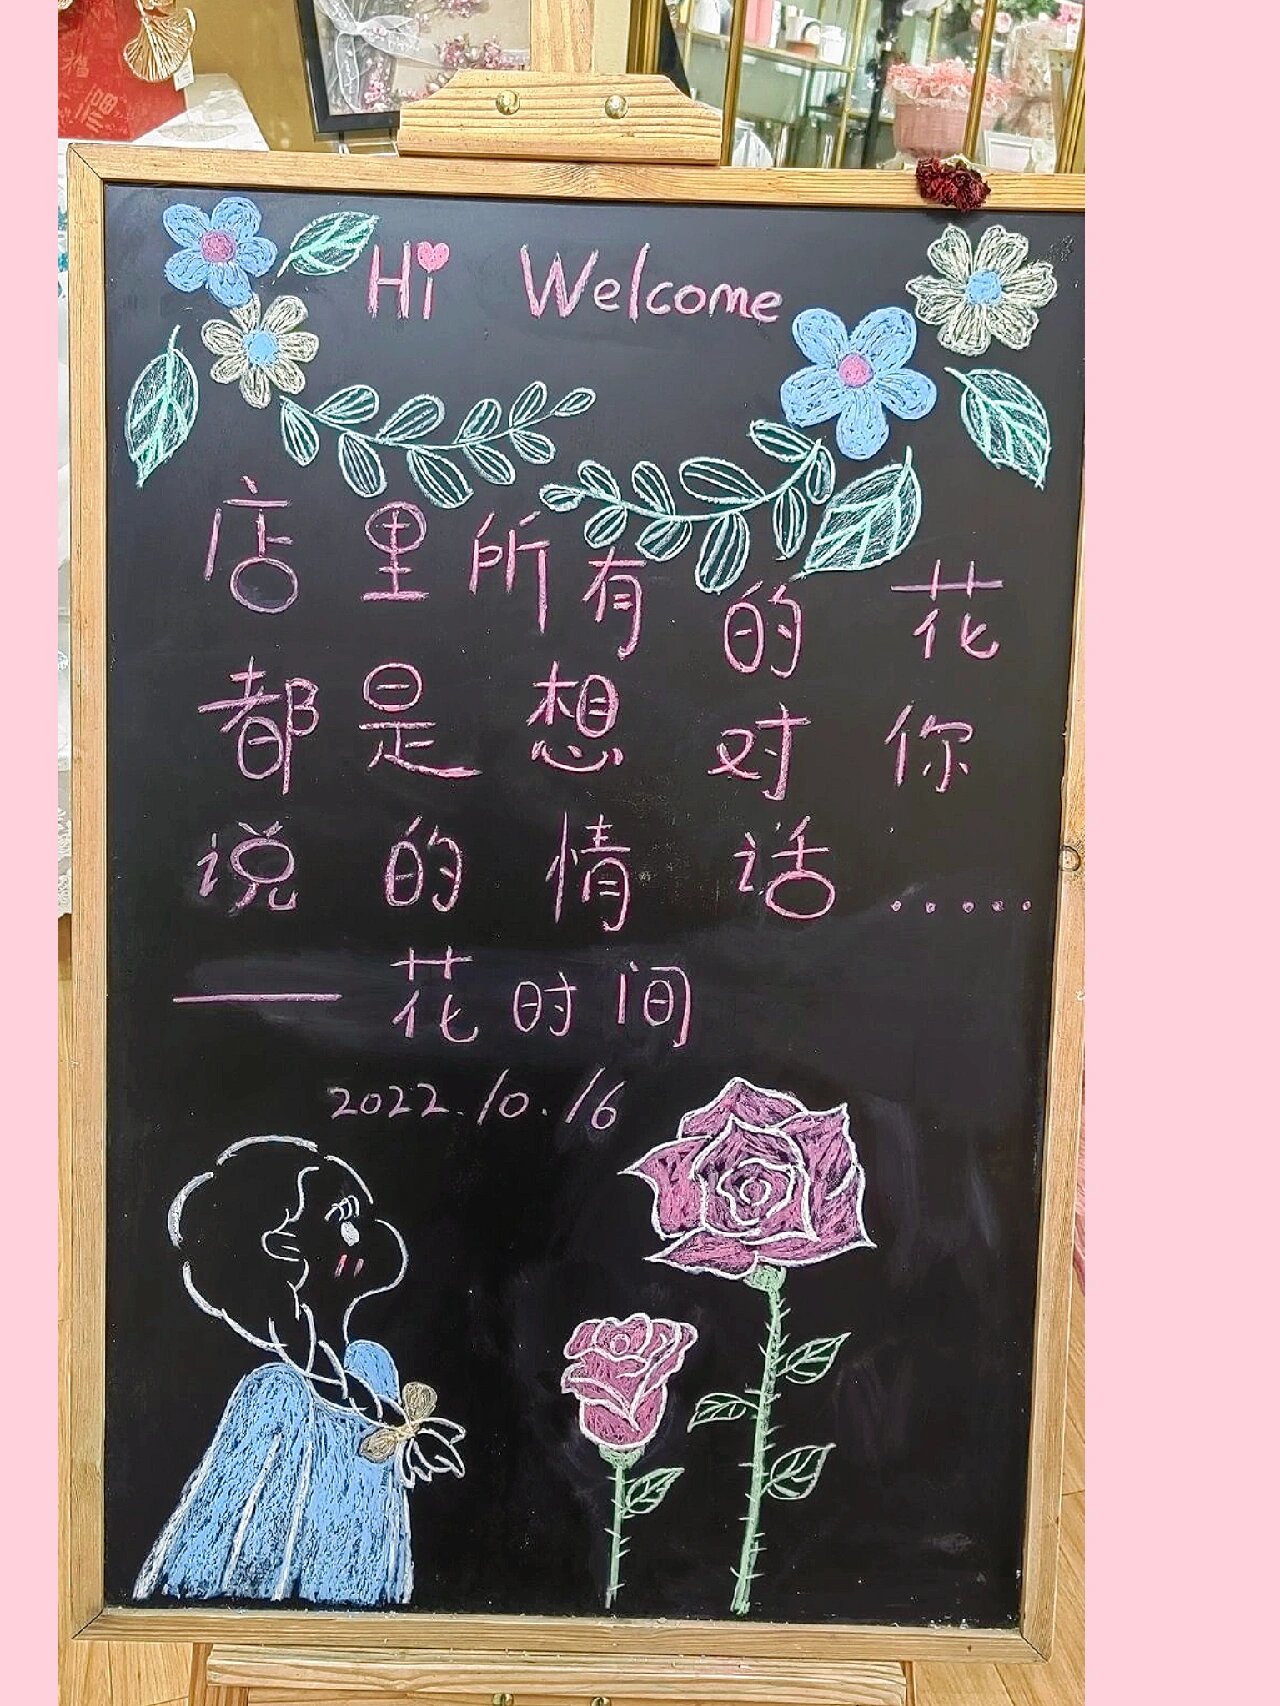 Hi Welcome
店里所有的花
都是想对你
说的情话.....
——花时间
2022.10.16